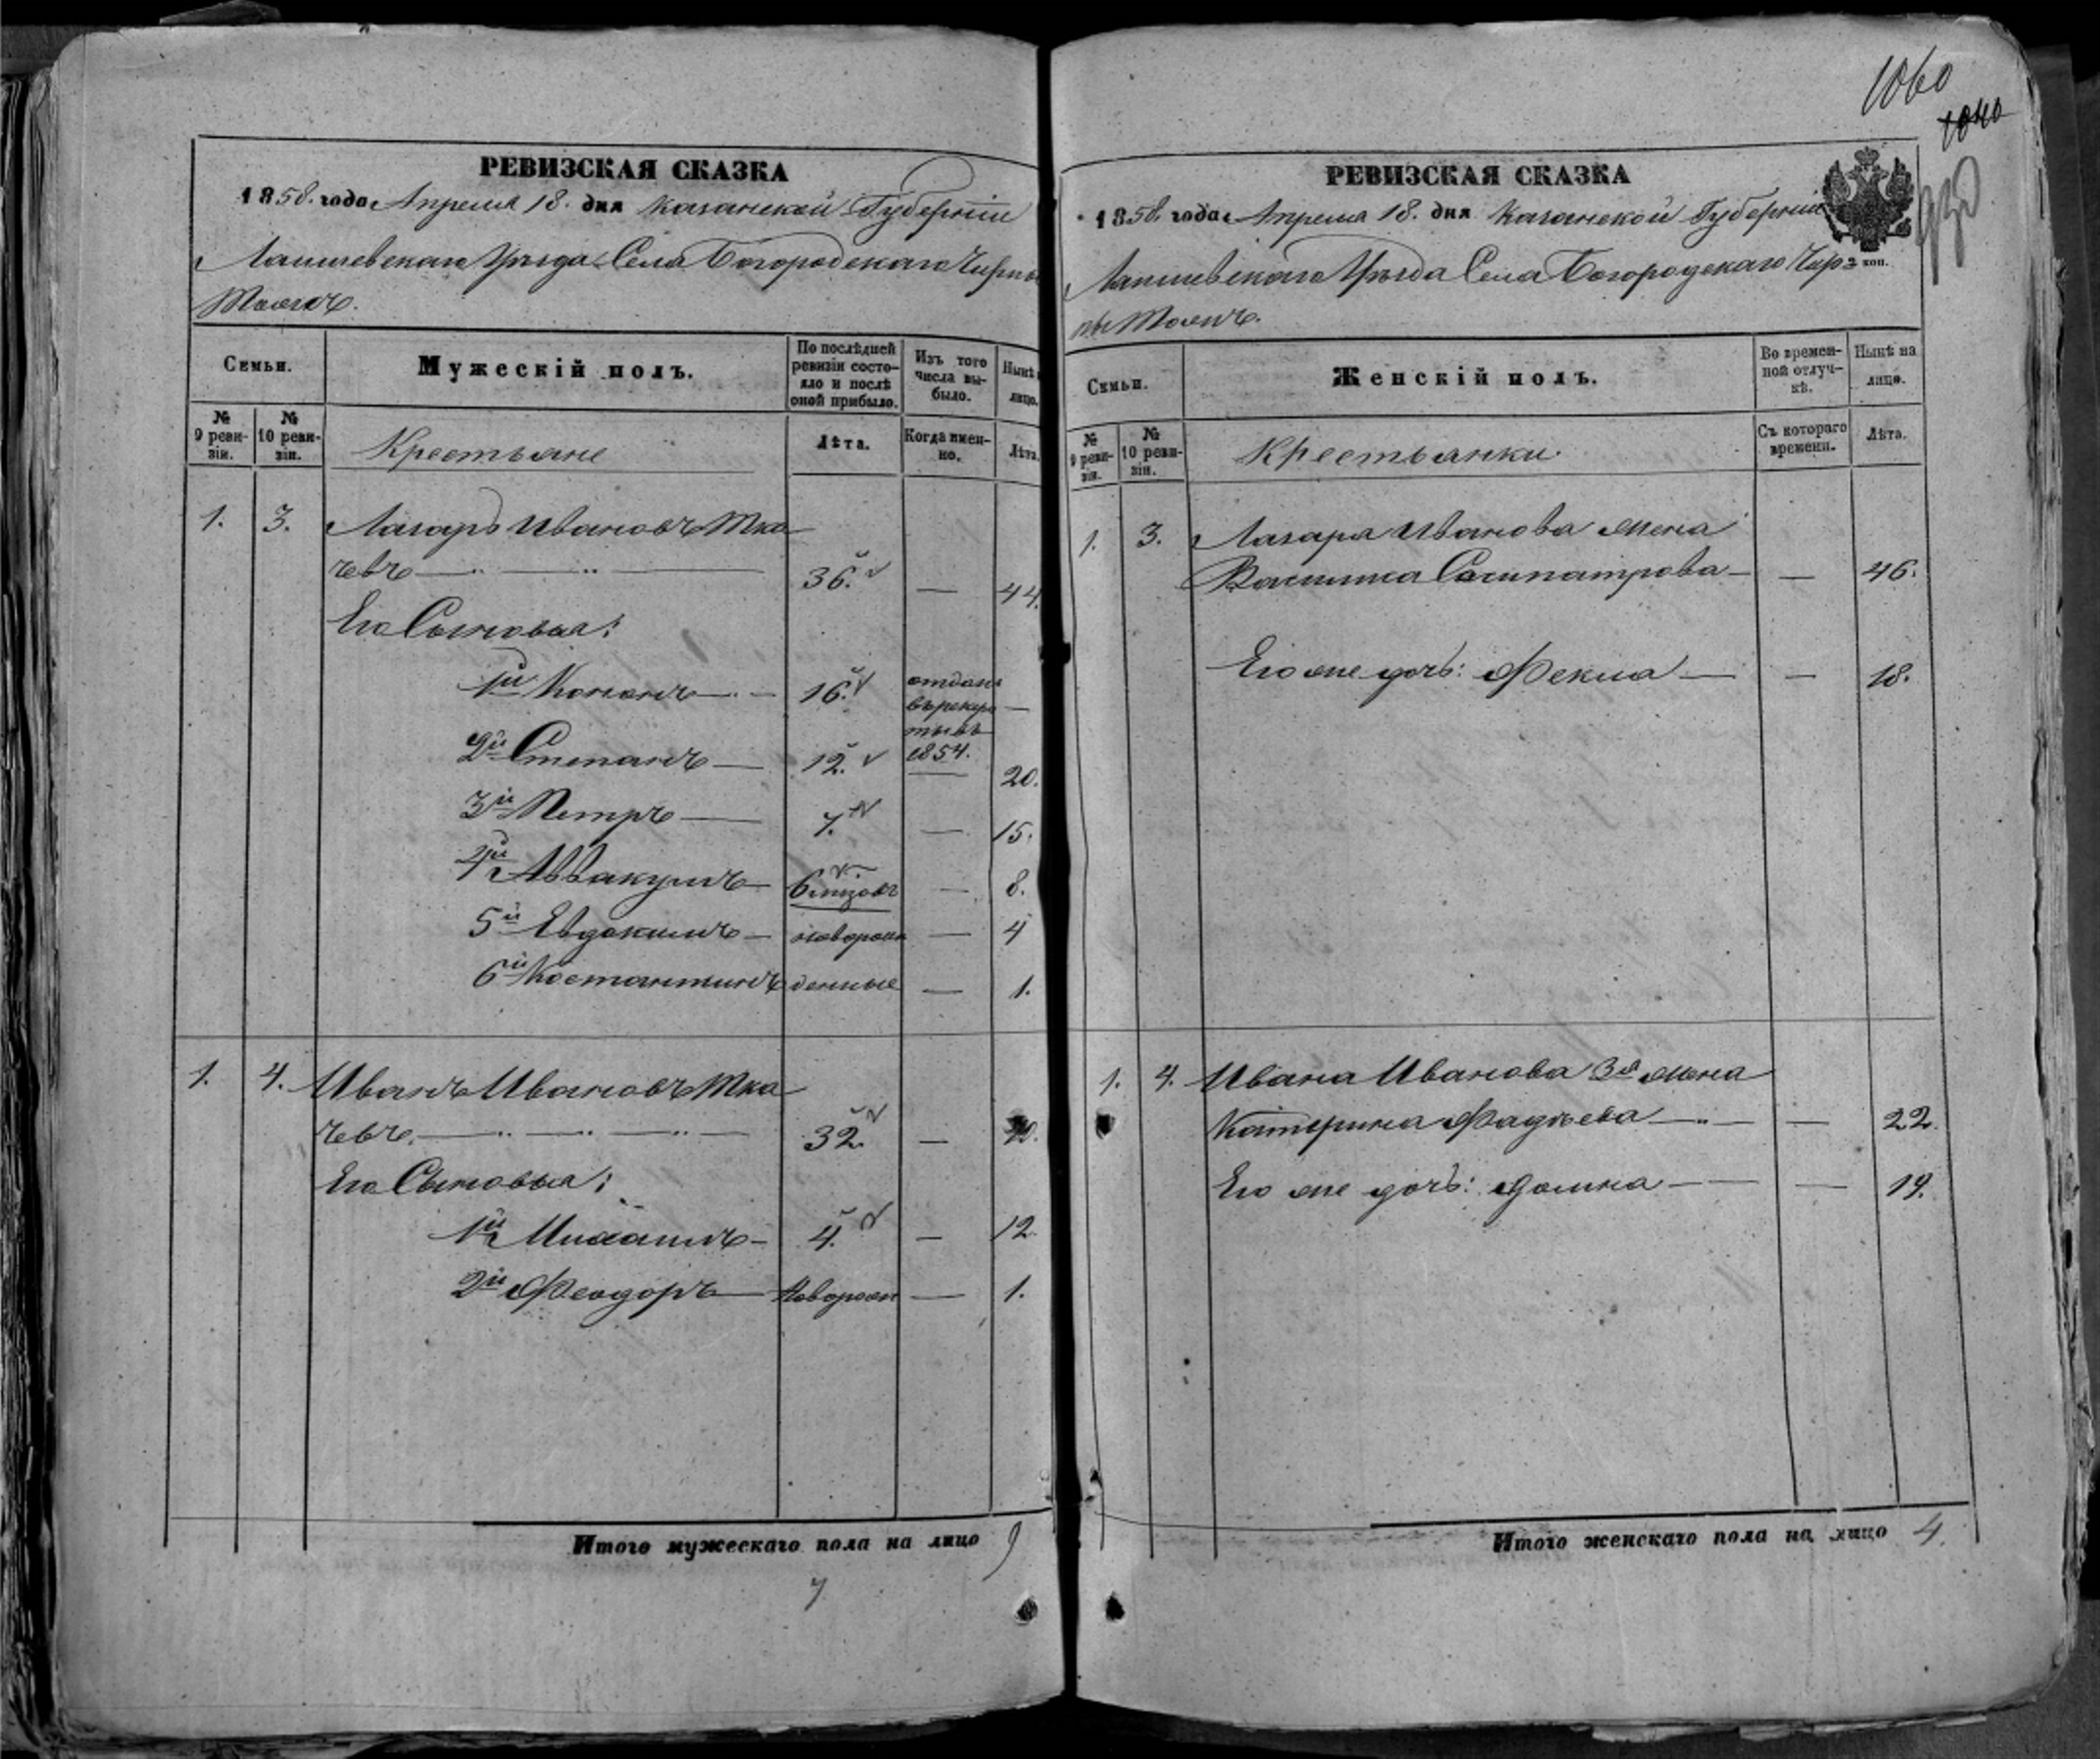 РЕВИЗСКАЯ СКАЗКА
1858. года Апреля 18. дня Казанской Губернiи
Лаишевскаго Уѣзда Села Богородскаго Чирпы
Толж.
Семьи.
Мужескiй полъ.
По послѣдней ревизiи состояло и послѣ оной прибыло.
Изъ того числа выбыло.
Нынѣ лицо.
№ 9 ревизiи.
№ 10 ревизiи.
Крестьяне
Лѣта.
Когда именно.
Лѣта.
1. 3. Лазарь Ивановъ Тка
чевъ 36. — 44.
Его Сыновья:
1й Кононъ 16. отданъ въ рекруты въ 1854. —
2й Степанъ 12. — 20.
3й Петръ 7. — 15.
4й Аввакумъ 6 мѣзовъ — 8.
5й Евдокимъ новорож — 4
6й Костантинъ денные — 1.
1. 4. Иванъ Ивановъ Тка
чевъ. 32. —
Его Сыновья:
1й Михаилъ 4. — 12.
2й Феодоръ Новорож — 1.
Итого мужескаго пола на лицо 9
7
1060
1040
РЕВИЗСКАЯ СКАЗКА
1858. года Апреля 18. дня Казанской Губернiи
Лаишевскаго Уѣзда Села Богородскаго Чир
3 коп.
пы
Семьи.
Женскiй полъ.
Во временной отлучкѣ.
Нынѣ на лицо.
№ 9 ревизiи.
№ 10 ревизiи.
Крестьянки.
Съ котораго времени.
Лѣта.
1. 3. Лазаря Иванова жена
Васлиса Сосипатрова — — 46.
Его же дочь: Фекла — — 18.
1. 4. Ивана Иванова 3я жена
Катерина Фадѣева — 22.
Его же дочь: Домна — — 19.
Итого женскаго пола на лицо 4.